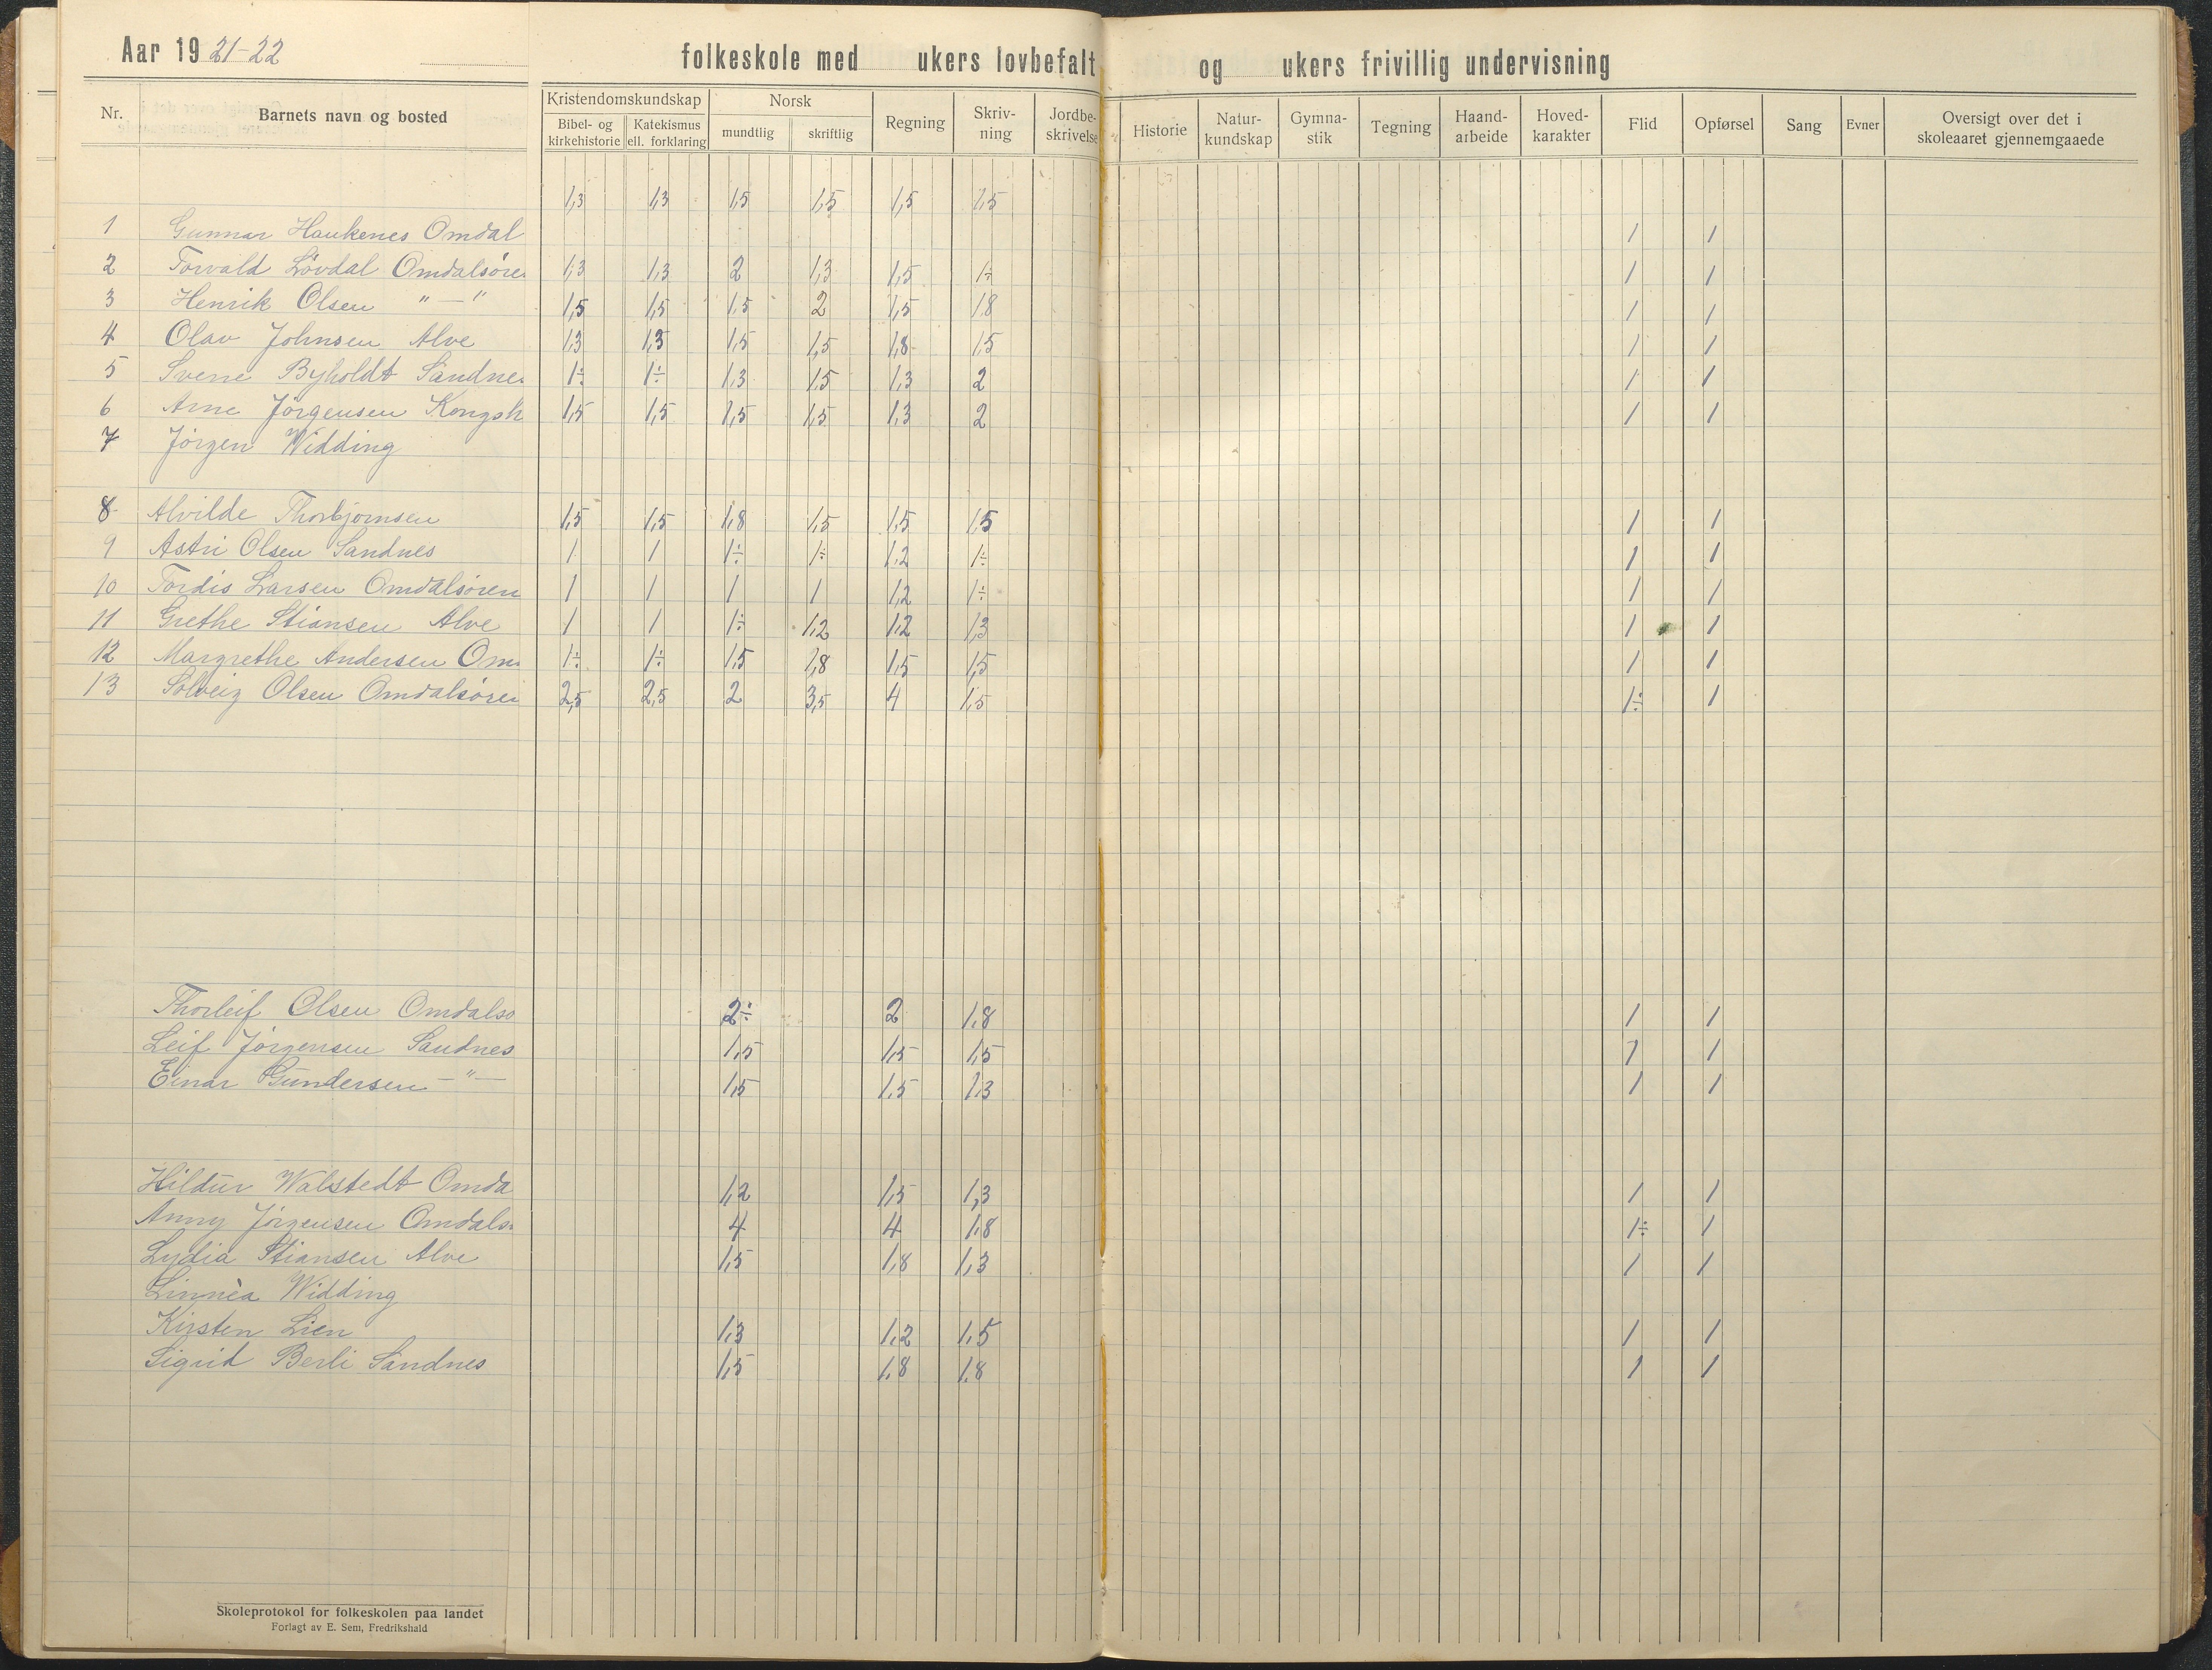 Aar 19 21-22 folkeskole med ukers lovbefalt og ukers frivillig undervisning
Nr. Barnets navn og bosted Kristendomskundskap Bibel- og kirkehistorie Katekismus ell. forklaring Norsk mundtlig skriftlig Regning Skriv-ning Jordbe-skrivelse Historie Natur-kundskap Gymna-stik Tegning Haand-arbeide Hoved-karakter Flid Opførsel Sang Evner Oversigt over det i skoleaaret gjennemgaaede
1,3 1,3 1,5 1,5 1,5 1,5
1 Gunnar Haukenes Omdal 1 1
2 Torvald Lövdal Omdalsøre 1,3 1,3 2 1,3 1,5 1÷ 1 1
3 Henrik Olsen " — " 1,5 1,5 1,5 2 1,5 1.8 1 1
4 Olav Johnsen Alve 1,3 1,3 1,5 1,5 1,8 1,5 1 1
5 Sverre Byholdt Sandne 1÷ 1÷ 1,3 1,5 1,3 2 1 1
6 Arne Jörgensen Kongsh 1,5 1,5 1,5 1,5 1,3 2 1 1
7 Jörgen Widding
8 Alvilde Thorbjørnsen 1,5 1,5 1,8 1,5 1,5 1,5 1 1
9 Astri Olsen Sandnes 1 1 1÷ 1÷ 1.2 1÷ 1 1
10 Tordis Larsen Omdalsøren 1 1 1 1 1,2 1÷ 1 1
11 Grethe Stiansen Alve 1 1 1÷ 1,2 1,2 1,3 1 1
12 Margrethe Andersen Om 1÷ 1÷ 1,5 1,8 1,5 1,5 1 1
13 Solveig Olsen Omdalsøren 2,5 2,5 2 3,5 4 1,5 1÷ 1
Thorleif Olsen Omdalsø 2÷ 2 1.8 1 1
Leif Jörgensen Sandnes 1,5 1,5 1,5 1 1
Einar Gundersen — " — 1,5 1.5 1,3 1 1
Hildur Walstedt Omda 1,2 1,5 1,3 1 1
Anny Jörgensen Omdals 4 4 1.8 1÷ 1
Lydia Stiansen Alve 1,5 1,8 1,3 1 1
Linnèa Widding
Kirsten Lien 1,3 1,2 1.5 1 1
Sigrid Berli Sandnes 1,5 1,8 1.8 1 1
Skoleprotokol for folkeskolen paa landet
Forlagt av E. Sem, Fredrikshald